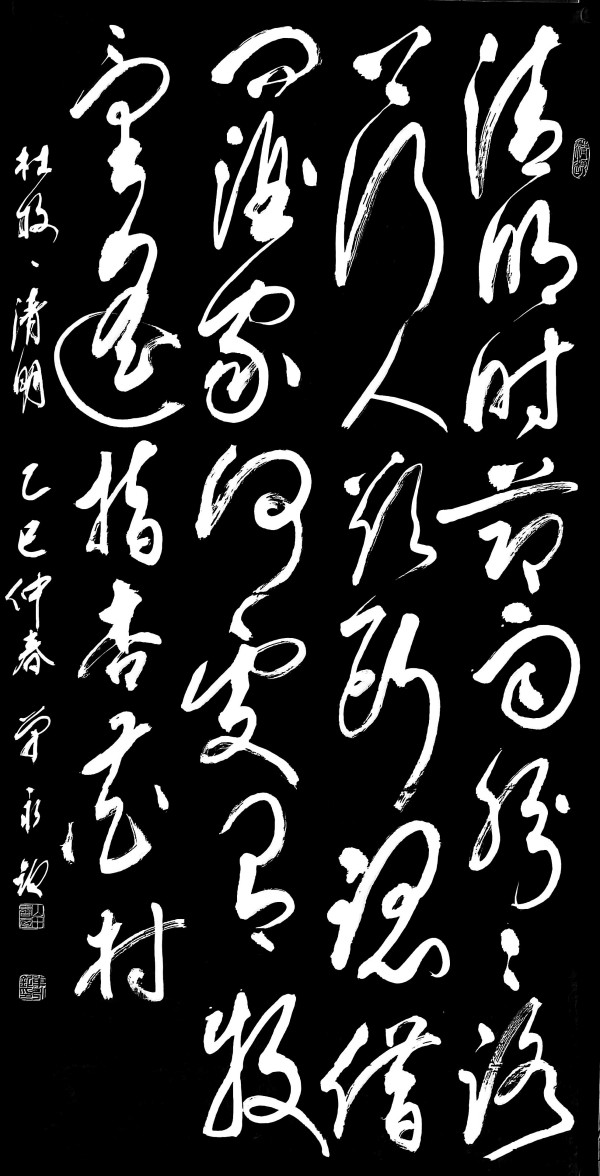 清明时节雨纷纷路
上行人欲断魂借
问酒家何处有牧
童遥指杏花村
杜牧、清明 乙巳仲春 永